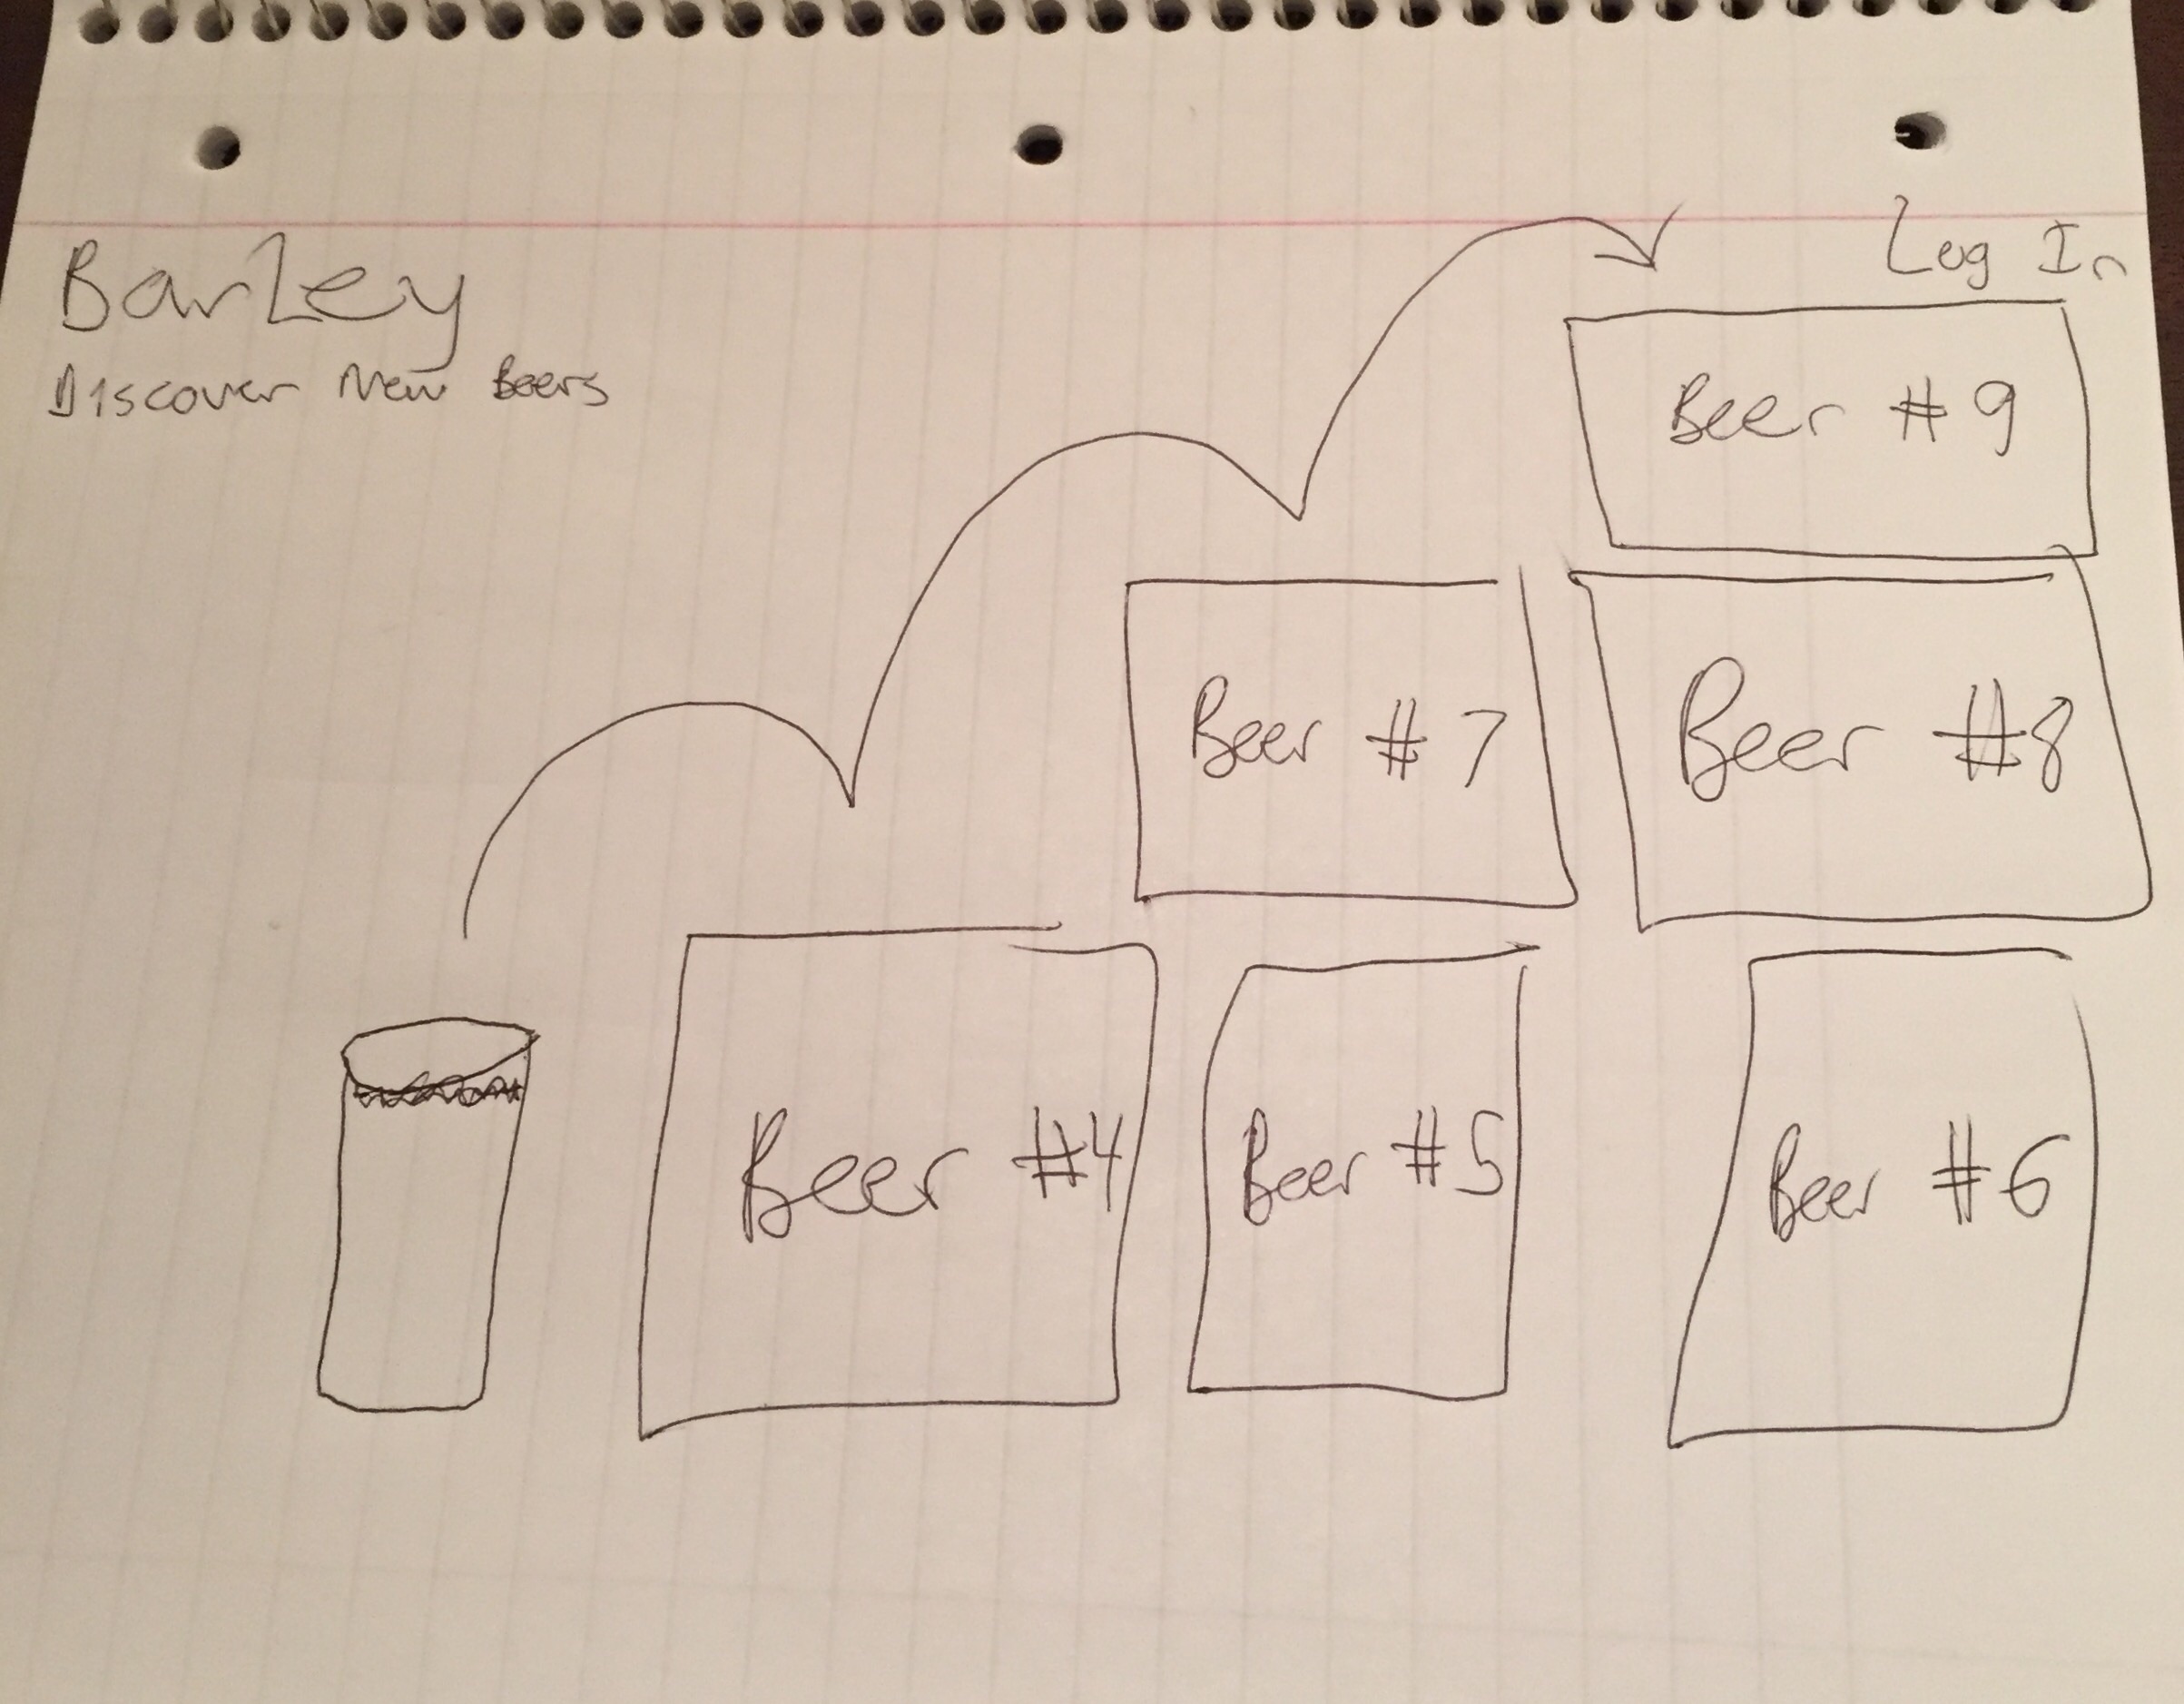 Barley
Discover New Beers
Log In
Beer #9
Beer #7
Beer #8
Beer #4
Beer #5
Beer #6